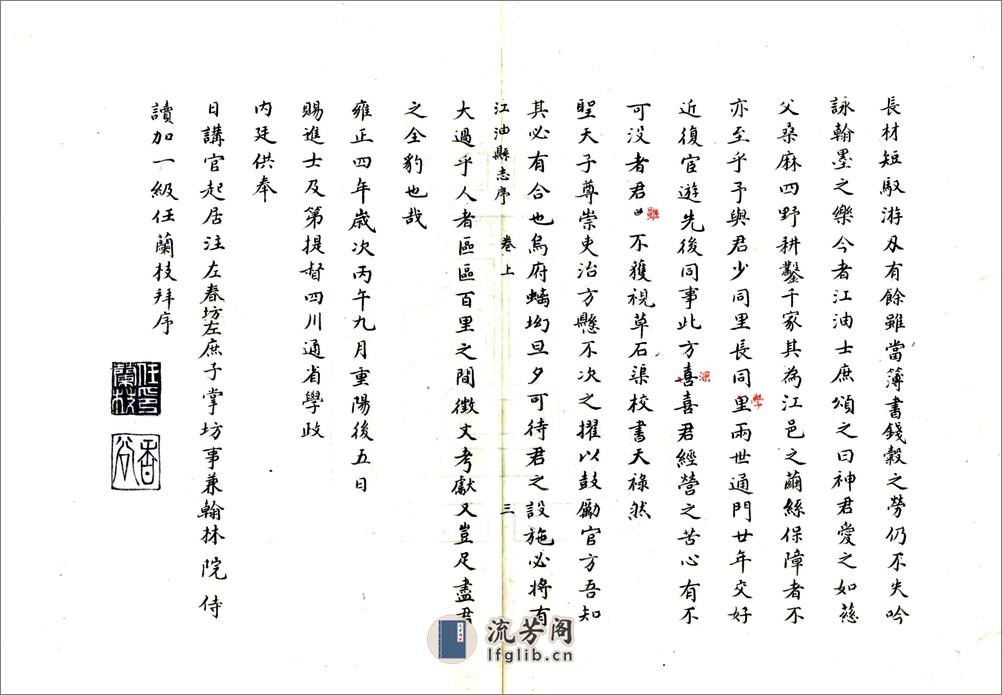 長材短馭游刃有餘雖當簿書錢穀之勞仍不失吟
詠翰墨之樂今者江油士庶頌之曰神君愛之如慈
父桑麻四野耕鑿千家其為江邑之繭絲保障者不
亦至乎予與君少同里長同里學兩世通門廿年交好
近復宦遊先後同事此方喜深喜君經營之苦心有不
可沒者君雖不獲視草石渠校書天祿然
聖天子尊崇吏治方懸不次之擢以鼓勵官方吾知
其必有合也烏府螭坳旦夕可待君之設施必將有
江油縣志序 卷上 三
大過乎人者區區百里之間徵文考獻又豈足盡君
之全豹也哉
雍正四年歲次丙午九月重陽後五日
賜進士及第提督四川通省學政
內廷供奉
日講官起居注左春坊左庶子掌坊事兼翰林院侍
讀加一級任蘭枝拜序
任蘭枝印
香谷
流芳阁
lfglib.cn